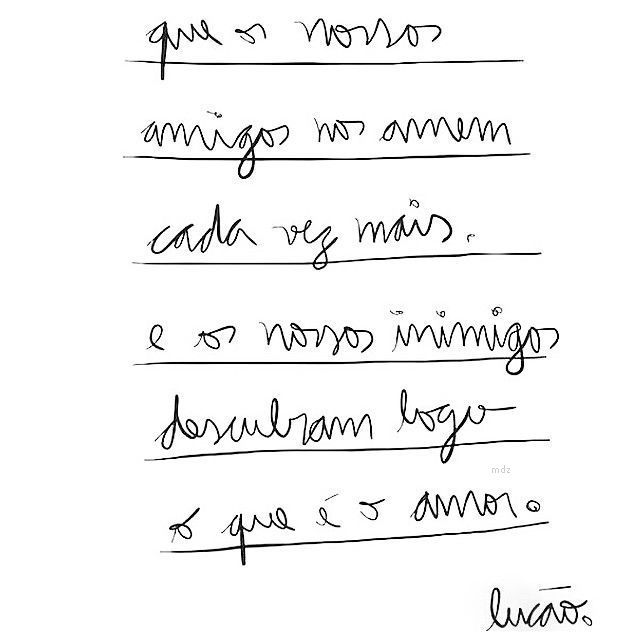 que os nossos
amigos nos amem
cada vez mais.
e os nossos inimigos
descubram logo
mdz
o que é o amor.
lucão.